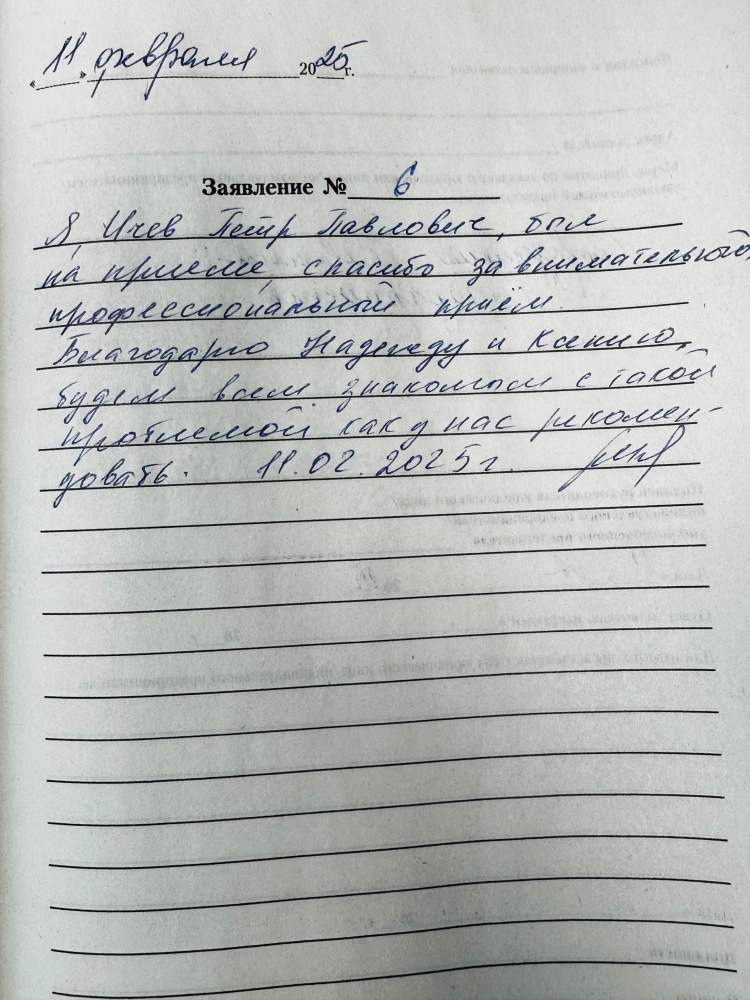 «11» февраля 2025г.
Заявление № 6
Я, Ичев Петр Павлович, был
на приеме, спасибо за внимательный,
профессиональный приём.
Благодарю Надежду и Ксению,
будем всем знакомым с такой
проблемой как у нас рекомен-
довать. 11.02.2025г.